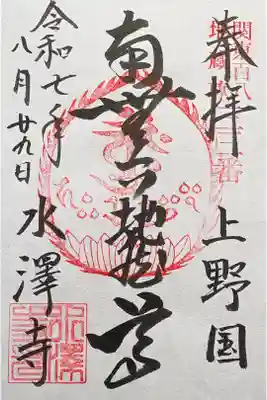 奉拝 上野国
関東百八
地蔵
南無六地蔵尊
令和七年
八月廿九日
水澤寺